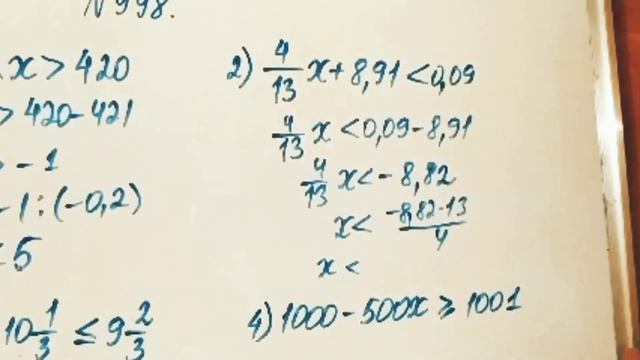 №998.
x > 420
> 420-421
> -1
-1:(-0,2)
< 5
10 1/3 ≤ 9 2/3
2) 4/13 x + 8,91 < 0,09
4/13 x < 0,09 - 8,91
4/13 x < - 8,82
x < -8,82·13/4
x <
4) 1000 - 500x ≥ 1001